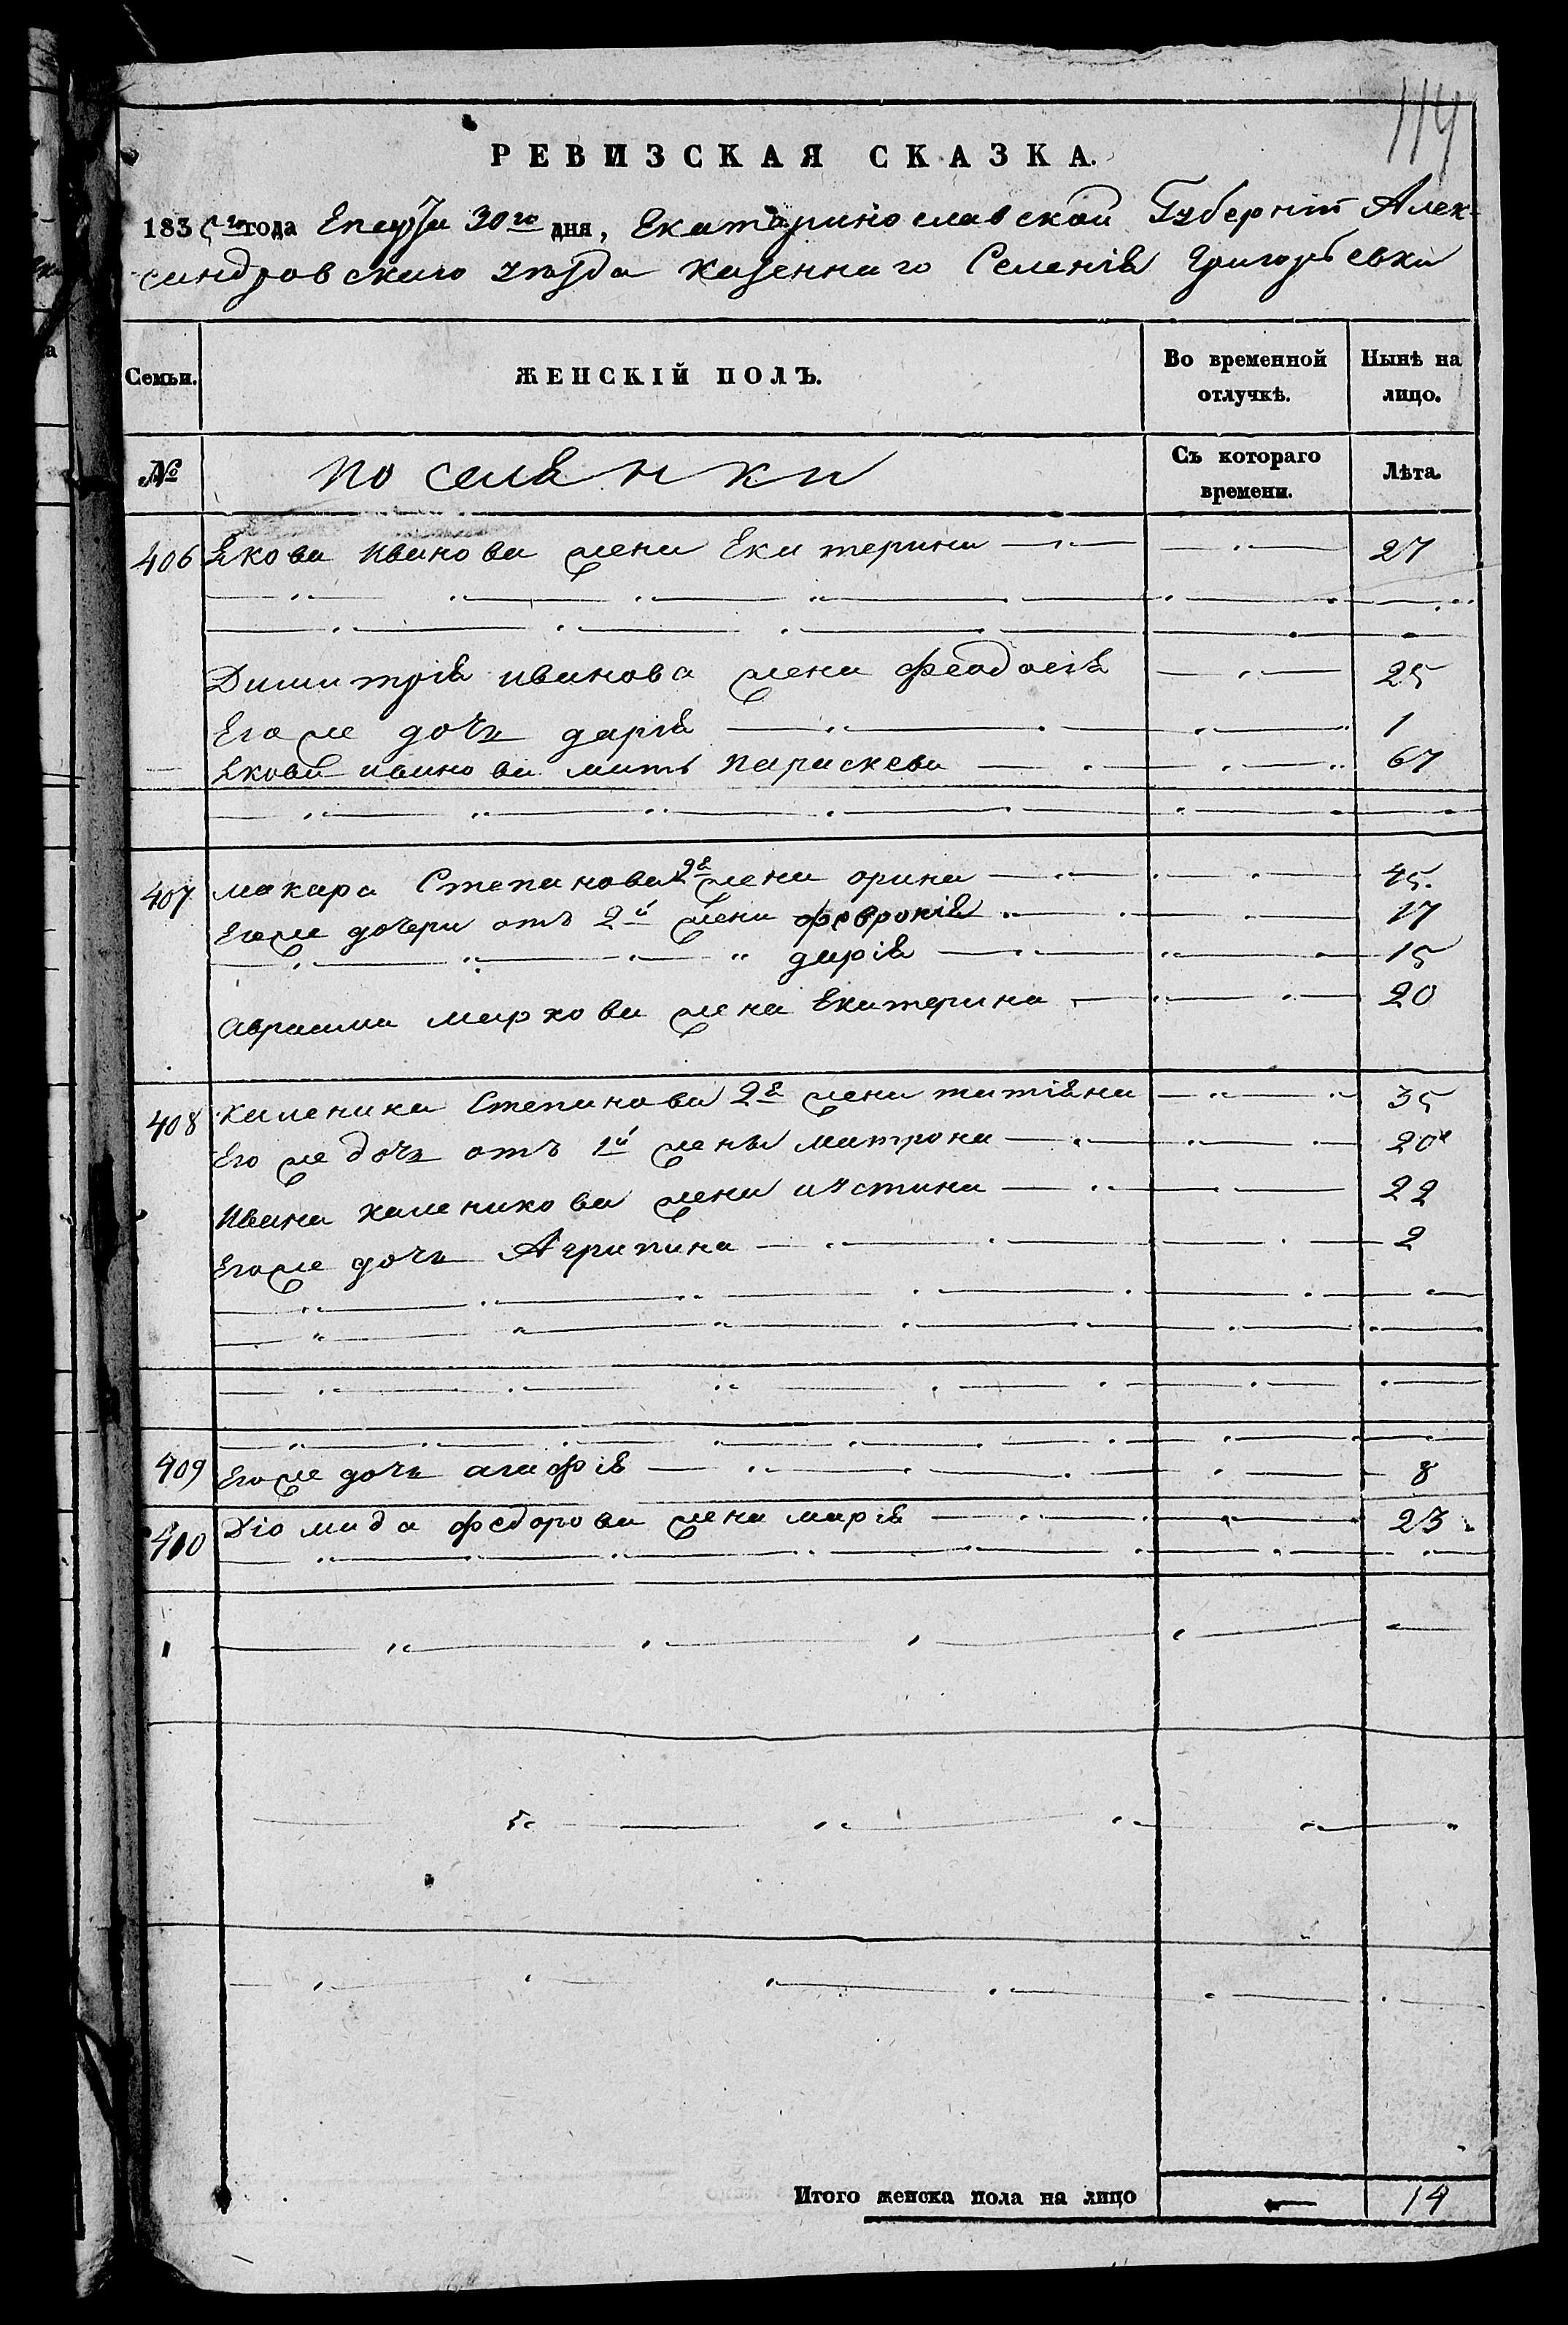 114
РЕВИЗСКАЯ СКАЗКА.
1835го года 30го дня, Екатеринославской Губерніи Алек-
сандровскаго уѣзда казеннаго Селенія Григорьевки
Семьи. ЖЕНСКІЙ ПОЛЪ. Во временной отлучкѣ. Нынѣ на лицо.
№ поселянки Съ котораго времени. Лѣта.
406 Якова Иванова жена Екатерина 27
Димитрія иванова жена Феодосія 25
Его же дочь дарія 1
Якова иванова мать Параскева 67
407 макара Степанова 2я жена орина 45.
Его же дочери отъ 2й жены февронія 17
дарія 15
авраама маркова жена Екатерина 20
408 каленика Степанова 2я жена татіяна 35
Его же дочь отъ 1й жены матрона 20
Ивана каленикова жена иустина 22
Его же дочь Агрипина 2
409 Его же дочь агафія 8
410 Діомида федорова жена марія 23
Итого женска пола на лицо — 14